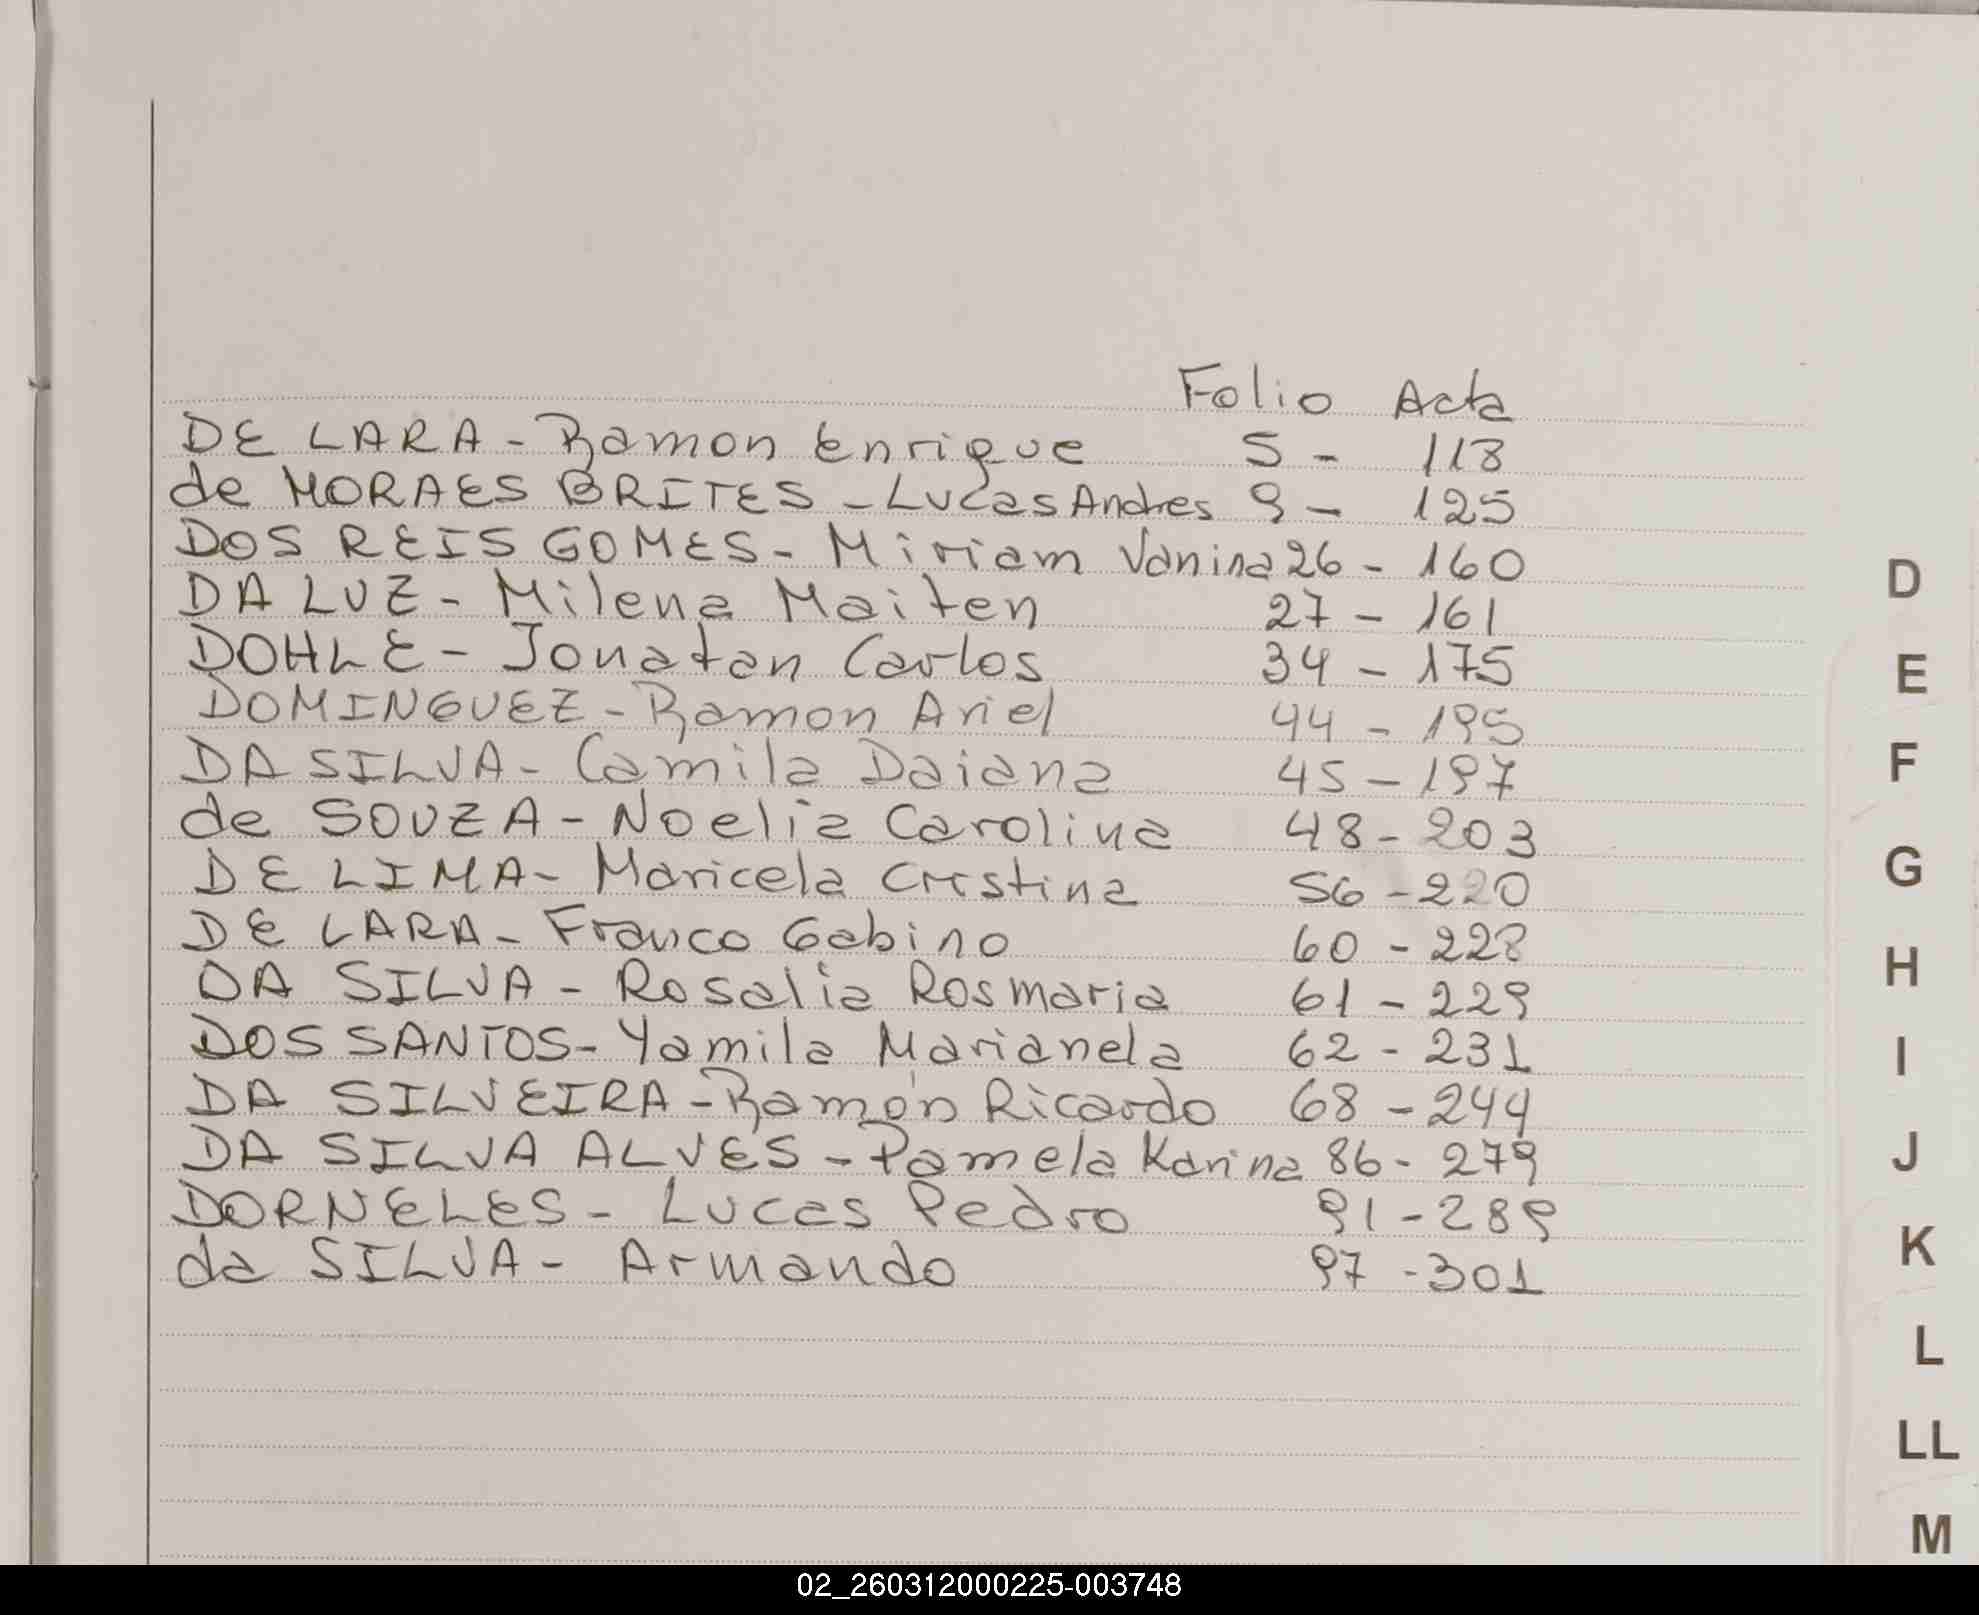 Folio Acta
DE LARA - Ramon Enrique 5 - 118
de MORAES BRITES - Lucas Andres 9 - 125
DOS REIS GOMES - Miriam Vanina 26 - 160
DA LUZ - Milena Maiten 27 - 161
DOHLE - Jonatan Carlos 34 - 175
DOMINGUEZ - Ramon Ariel 44 - 195
DA SILVA - Camila Daiana 45 - 197
de SOUZA - Noelia Carolina 48 - 203
DE LIMA - Maricela Cristina 56 - 220
DE LARA - Franco Gabino 60 - 228
DA SILVA - Rosalia Rosmaria 61 - 229
DOS SANTOS - Yamila Marianela 62 - 231
DA SILVEIRA - Ramón Ricardo 68 - 244
DA SILVA ALVES - Pamela Karina 86 - 279
DORNELES - Lucas Pedro 91 - 289
da SILVA - Armando 97 - 301
D
E
F
G
H
I
J
K
L
LL
M
02_260312000225-003748